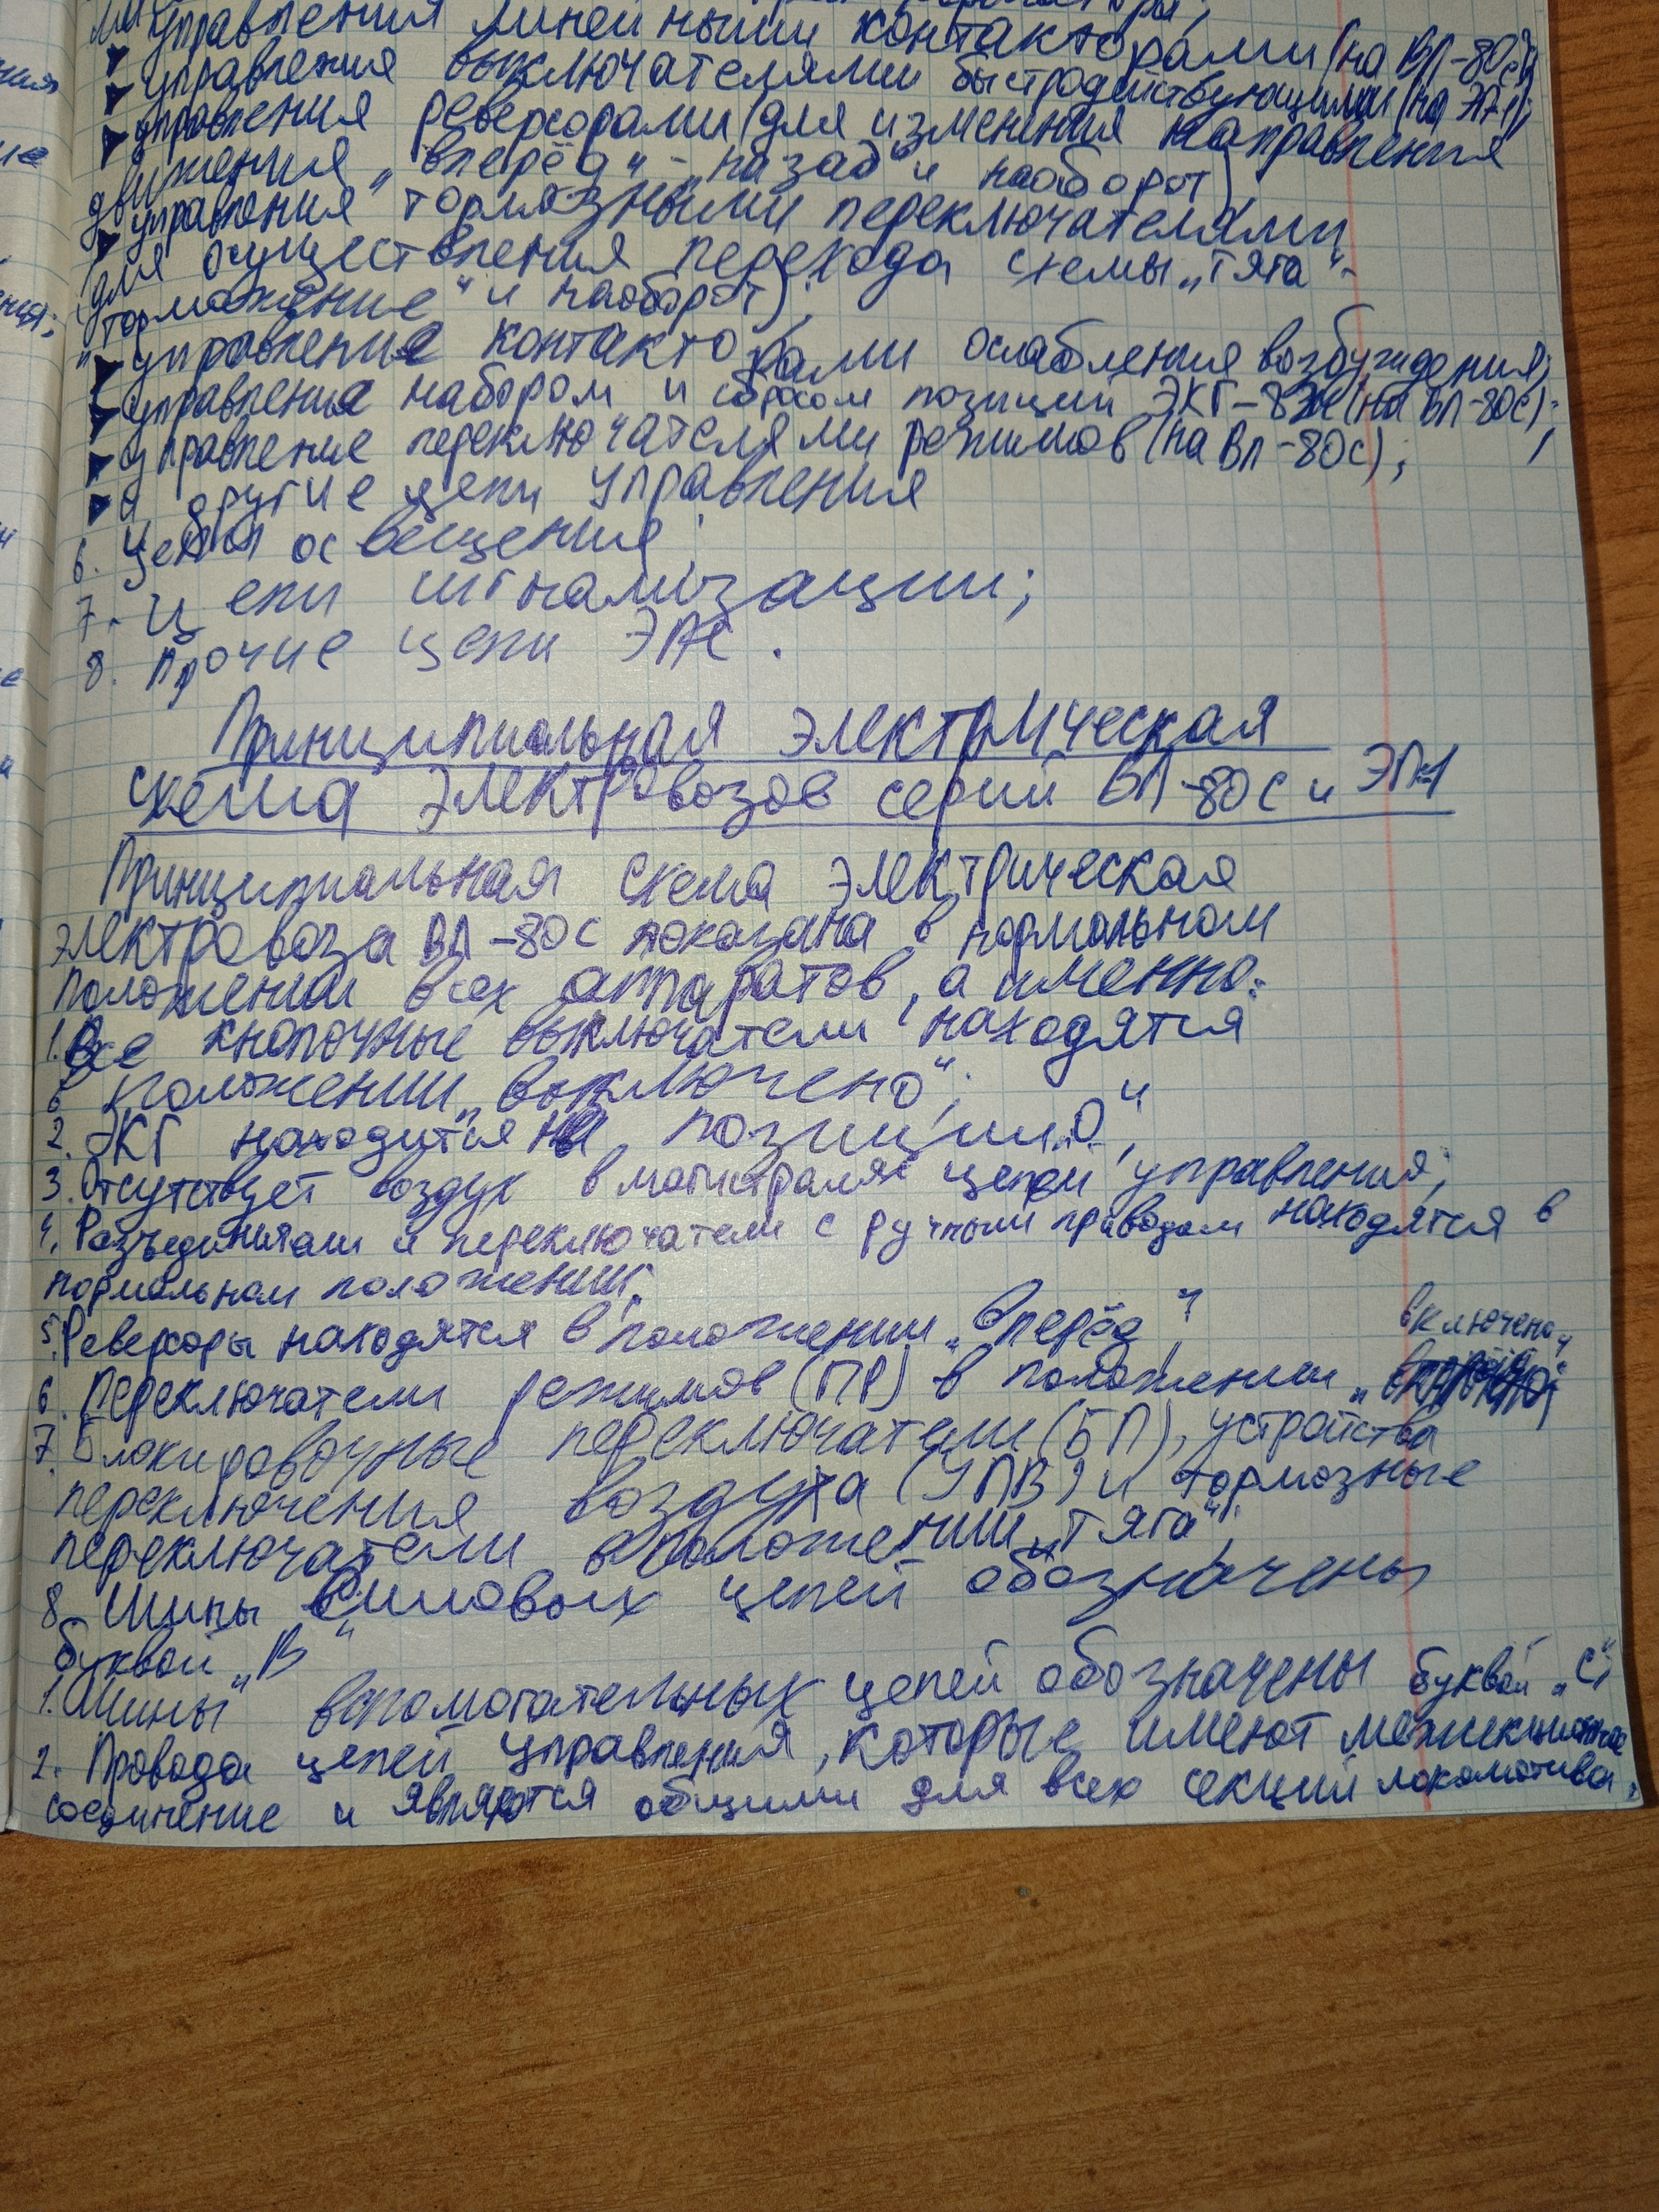 управления линейными контакторами (на ВЛ-80с);
управления выключателями быстродействующими (на ЭП-1);
управления реверсорами (для изменения направления
движения „вперёд“ - „назад“ и наоборот)
управления тормозными переключателями
(для осуществления перехода схемы „тяга“-
„торможение“ и наоборот);
управление контакторами ослабления возбуждения;
управление набором и сбросом позиций ЭКГ-8Ж (на ВЛ-80с);
управление переключателями режимов (на ВЛ-80с);
и другие цепи управления
6. Цепи освещения;
7. Цепи сигнализации;
8. Прочие цепи ЭПС.
Принципиальная электрическая
схема электровозов серий ВЛ-80с и ЭП-1
Принципиальная схема электрическая
электровоза ВЛ-80с показана в нормальном
положении всех аппаратов, а именно:
1. Все кнопочные выключатели находятся
в положении „выключено“;
2. ЭКГ находится на позиции „0“;
3. Отсутствует воздух в магистралях цепей управления;
4. Разъединители и переключатели с ручным приводом находятся в
нормальном положении;
5. Реверсоры находятся в положении „вперёд“;
6. Переключатели режимов (ПР) в положении „включено“;
7. Блокировочные переключатели (БП), устройства
переключения воздуха (УПВ) и тормозные
переключатели в положении „тяга“;
8. Шины силовых цепей обозначены
буквой „В“
1. Шины вспомогательных цепей обозначены буквой „С“;
2. Провода цепей управления, которые имеют межсекционное
соединение и являются общими для всех секций локомотива,